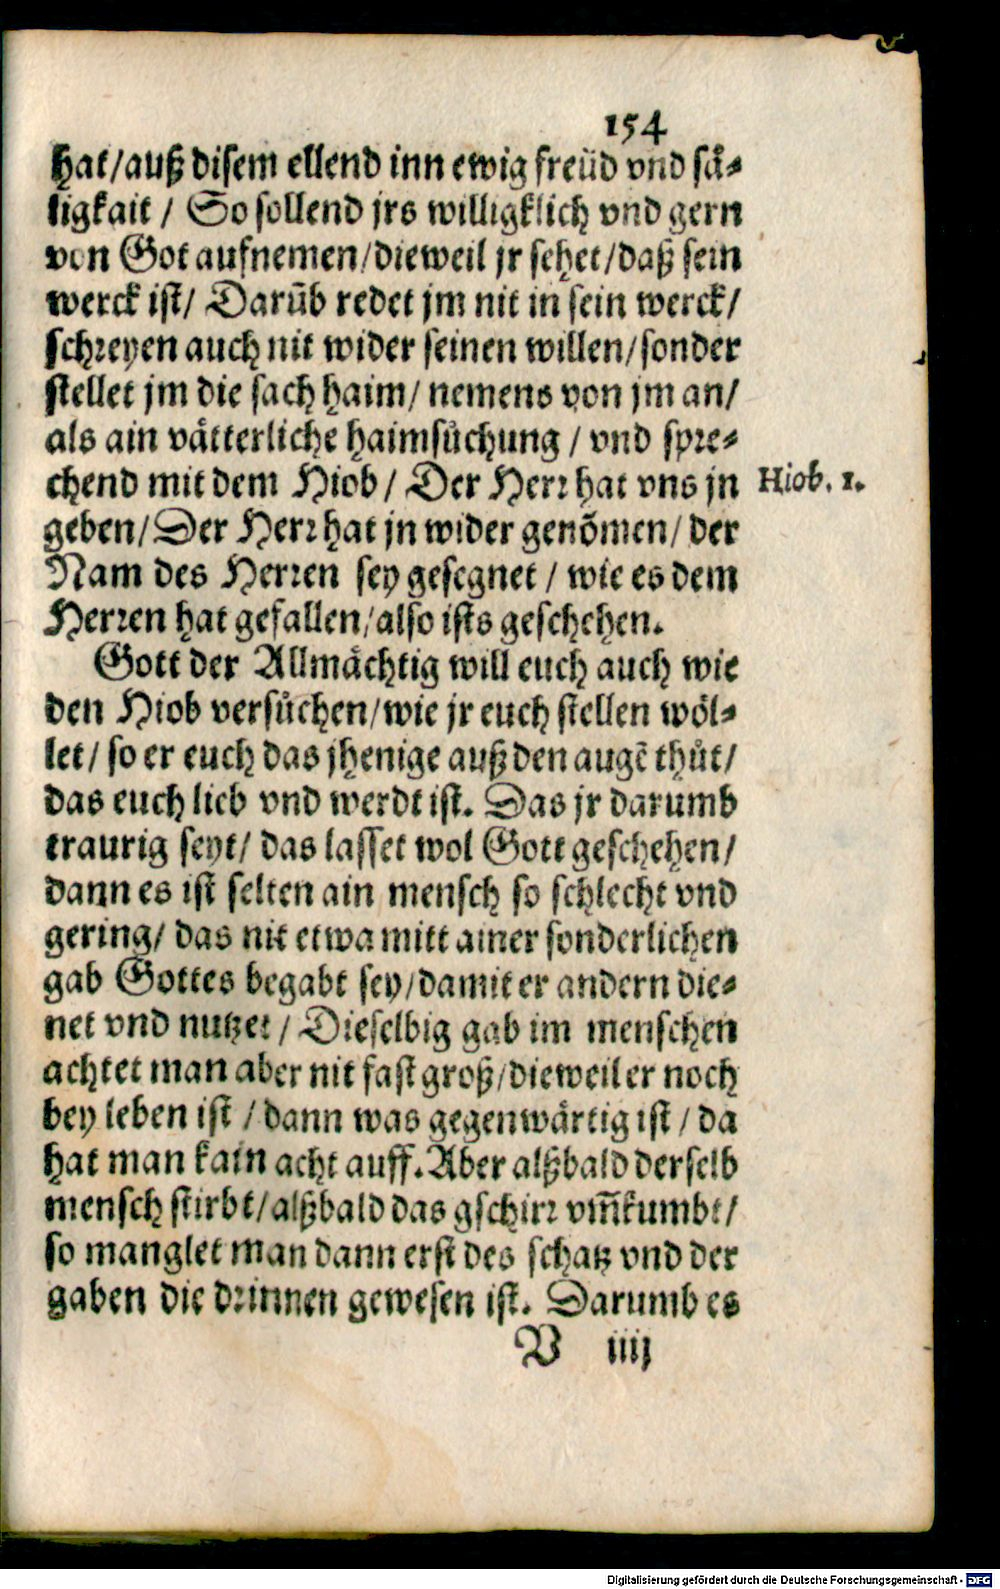 154
hat/auß disem ellend inn ewig freüd vnd sä⸗
ligkait / So sollend jrs willigklich vnd gern
von Got aufnemen/dieweil jr sehet/daß sein
werck ist/ Darũb redet jm nit in sein werck/
schreyen auch nit wider seinen willen/sonder
stellet jm die sach haim/ nemens von jm an/
als ain vätterliche haimsůchung / vnd spre⸗
chend mit dem Hiob/ Der Herr hat vns jn
Hiob. 1.
geben/Der Herr hat jn wider genõmen/ der
Nam des Herren sey gesegnet / wie es dem
Herren hat gefallen/also ists geschehen.
Gott der Allmächtig will euch auch wie
den Hiob versůchen/wie jr euch stellen wöl⸗
let/ so er euch das jhenige auß den augẽ thůt/
das euch lieb vnd werdt ist. Das jr darumb
traurig seyt/ das lasset wol Gott geschehen/
dann es ist selten ain mensch so schlecht vnd
gering/ das nit etwa mitt ainer sonderlichen
gab Gottes begabt sey/damit er andern die⸗
net vnd nutzet / Dieselbig gab im menschen
achtet man aber nit fast groß/dieweil er noch
bey leben ist / dann was gegenwärtig ist / da
hat man kain acht auff. Aber alßbald derselb
mensch stirbt/alßbald das gschirr vm̃kumbt/
so manglet man dann erst des schatz vnd der
gaben die drinnen gewesen ist. Darumb es
V iiij
Digitalisierung gefördert durch die Deutsche Forschungsgemeinschaft - DFG